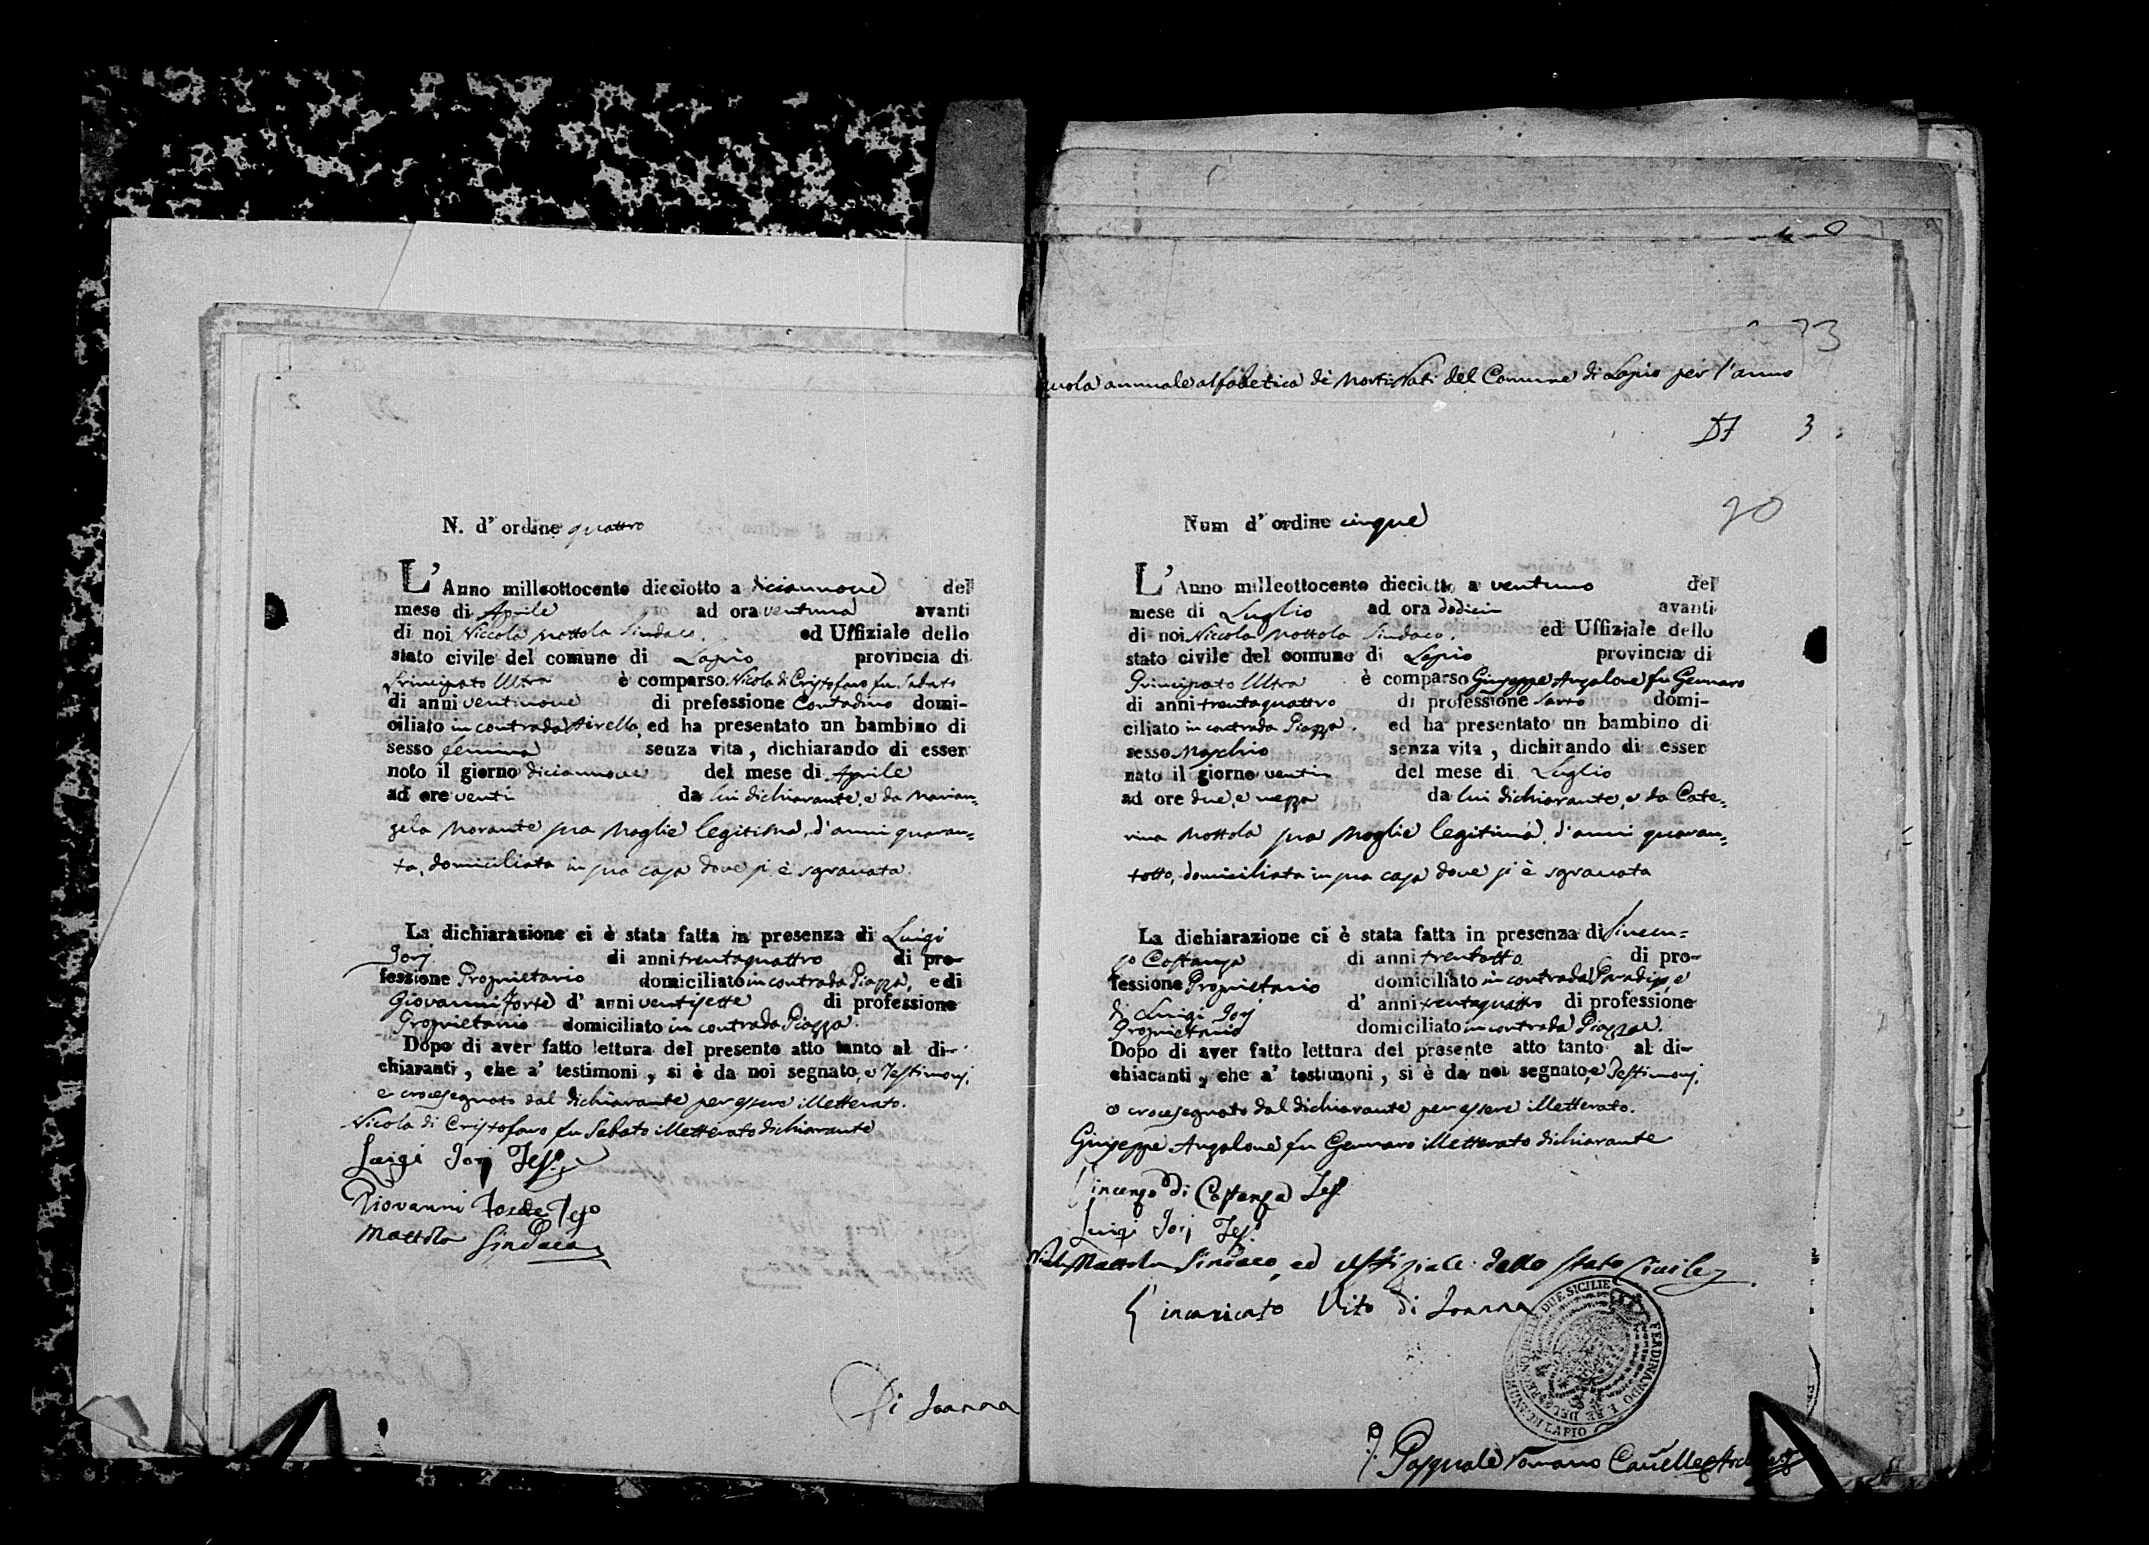 N. d' ordine quattro
L' Anno milleottocento dicciotto a diciannove del
mese di Aprile ad ora ventuna avanti
di noi Niccola Mottola Sindaco. ed Uffiziale dello
stato civile del comune di Lapio provincia di
Principato Ultra è comparso Nicola di Cristofaro fu Sabato
di anni ventinove di prefessione Contadino domi-
ciliato in contrada Airella, ed ha presentato un bambino di
sesso femina senza vita, dichiarando di esser
noto il giorno diciannove del mese di Aprile
ad ore venti da lui dichiarante, e da Marian=
gela Morante sua Moglie legitima, d'anni quaran=
ta, domiciliata in sua casa dove si è sgravata.
La dichiarazione ci è stata fatta in presenza di Luigi
Jorj di anni trentaquattro di pro-
fessione Proprietario domiciliato in contrada Piazza, e di
Giovanni Forte d' anni ventisette di professione
Proprietario domiciliato in contrada Piazza.
Dopo di aver fatto lettura del presente atto tanto al di-
chiaranti, che a' testimoni, si è da noi segnato, e Testimonj,
e crocesegnato dal dichiarante per essere illetterato.
Nicola di Cristofaro fu Sabato illetterato dichiarante
Luigi Jorj Tes.
Giovanni Forte Tes.o
Mottola Sindaco
Di Joanna
annuale alfabetica de' Morti Nati del Comune di Lapio per l'anno
73
3
Num d' ordine cinque
20
L' Anno milleottocento dicciotto a ventuno del
mese di Luglio ad ora dodici avanti
di noi Niccola Mottola Sindaco. ed Uffiziale dello
stato civile del comune di Lapio provincia di
Principato Ultra è comparso Giuseppe Anzalone fu Gennaro
di anni trentaquattro di professione Sarto domi-
ciliato in contrada Piazza. ed ha presentato un bambino di
sesso Maschio senza vita, dichirando di esser
nato il giorno venti del mese di Luglio
ad ore due, e mezza da lui dichiarante, e da Cate=
rina Mottola sua Moglie legitima, d'anni quaran=
totto, domiciliata in sua casa dove si è sgravata
La dichiarazione ci è stata fatta in presenza di Vincen=
zo Costanza di anni trentotto di pro-
fessione Proprietario domiciliato in contrada Paradiso e
di Luigi Jorj d' anni trentaquattro di professione
Proprietario domiciliato in contrada Piazza.
Dopo di aver fatto lettura del presente atto tanto al di-
chiacanti, che a' testimoni, si è da noi segnato, e Testimonj,
e crocesegnato dal dichiarante per essere illetterato.
Giuseppe Anzalone fu Gennaro illetterato dichiarante
Vincenzo di Costanza Tes.
Luigi Jorj Tes.
Nicola Mottola Sindaco, ed Uffiziale dello Stato Civile
L'incaricato Vito di Joanna
FERDINANDO I. RE DEL REGNO DELLE DUE SICILIE
LAPIO
Pasquale Romano